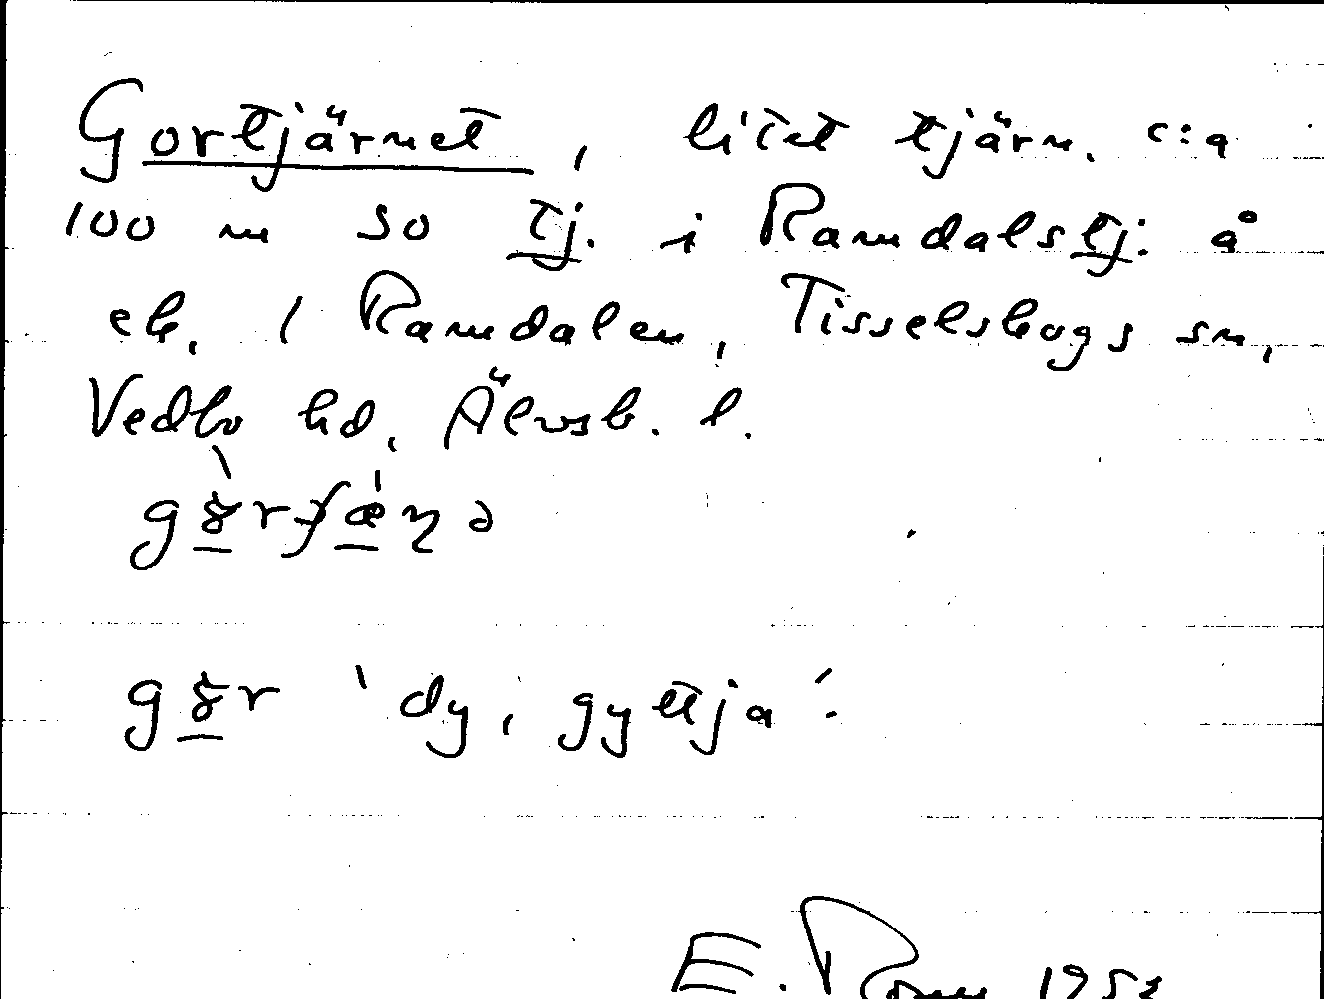 Gortjärnet, litet tjärn, c:a
100 m SO tj. i Ramdalstj: å
ek. 1 Ramdalen, Tisselskogs sn,
Vedbo hd, Älvsb. l.
'dy, gyttja'.
E. 195